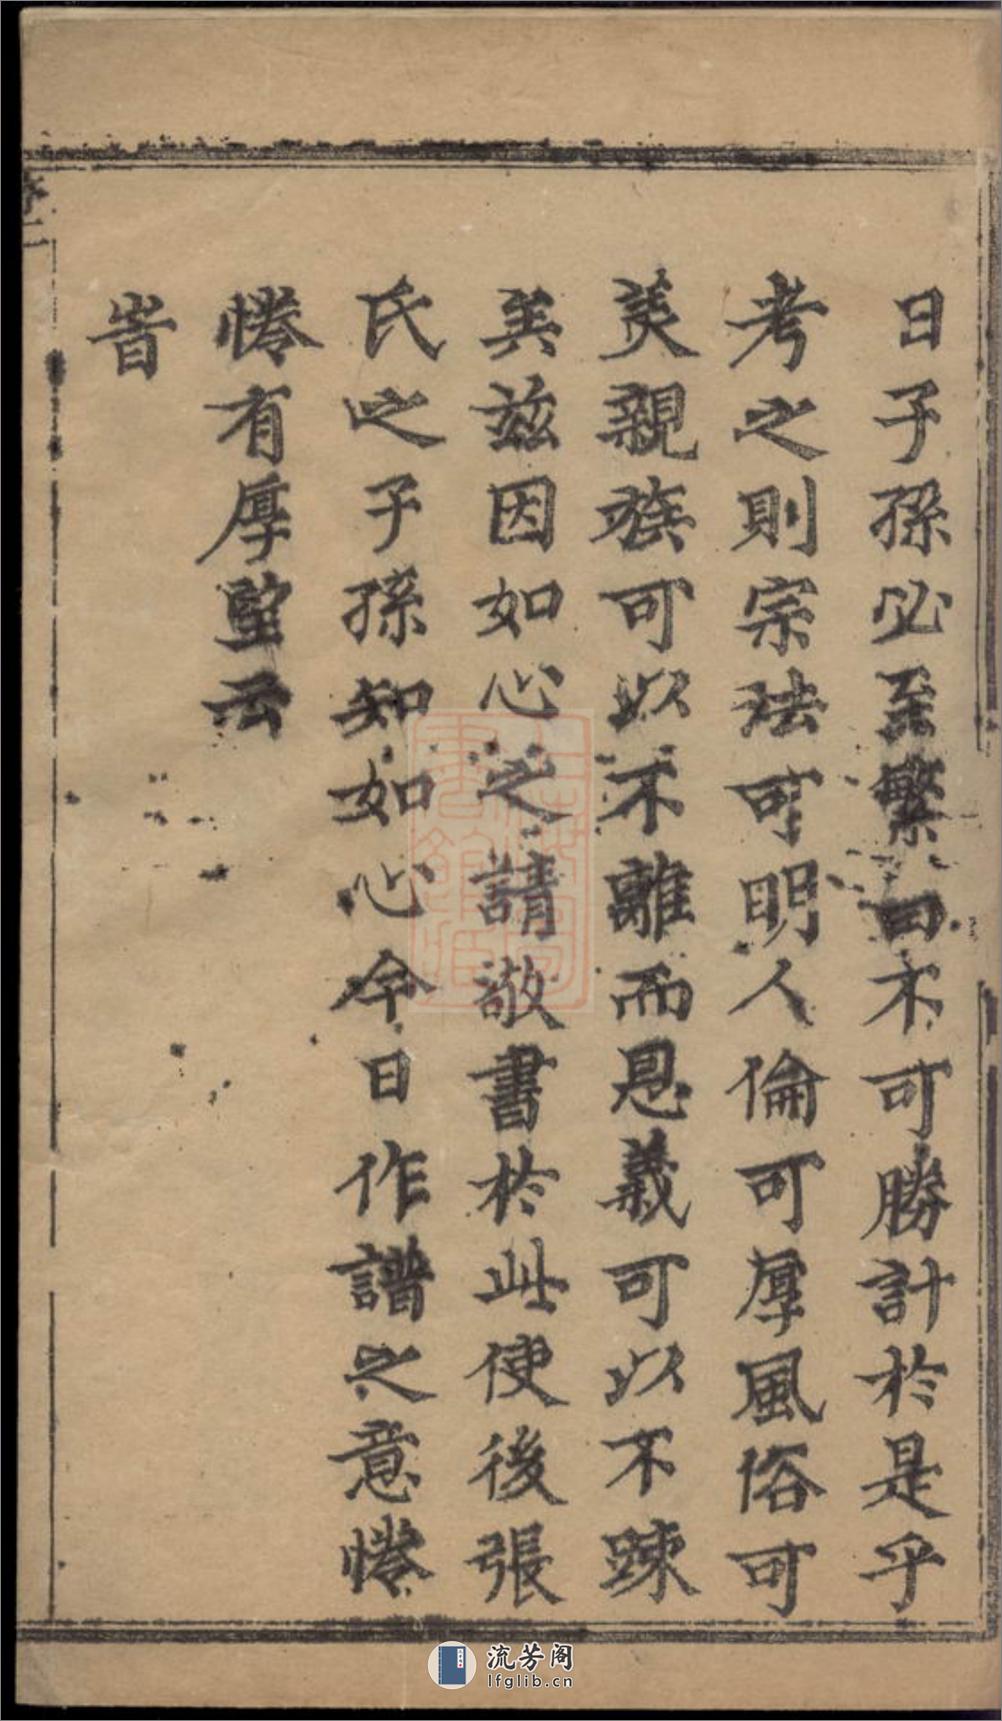 日子孫必至繁田不可勝計於是乎
考之則宗法可明人倫可厚風俗可
美親族可以不離而恩義可以不踈
矣兹因如心之請敬書於此使後張
氏之子孫知如心今日作譜之意惓
惓有厚望云
旹
流芳阁
lfglib.cn